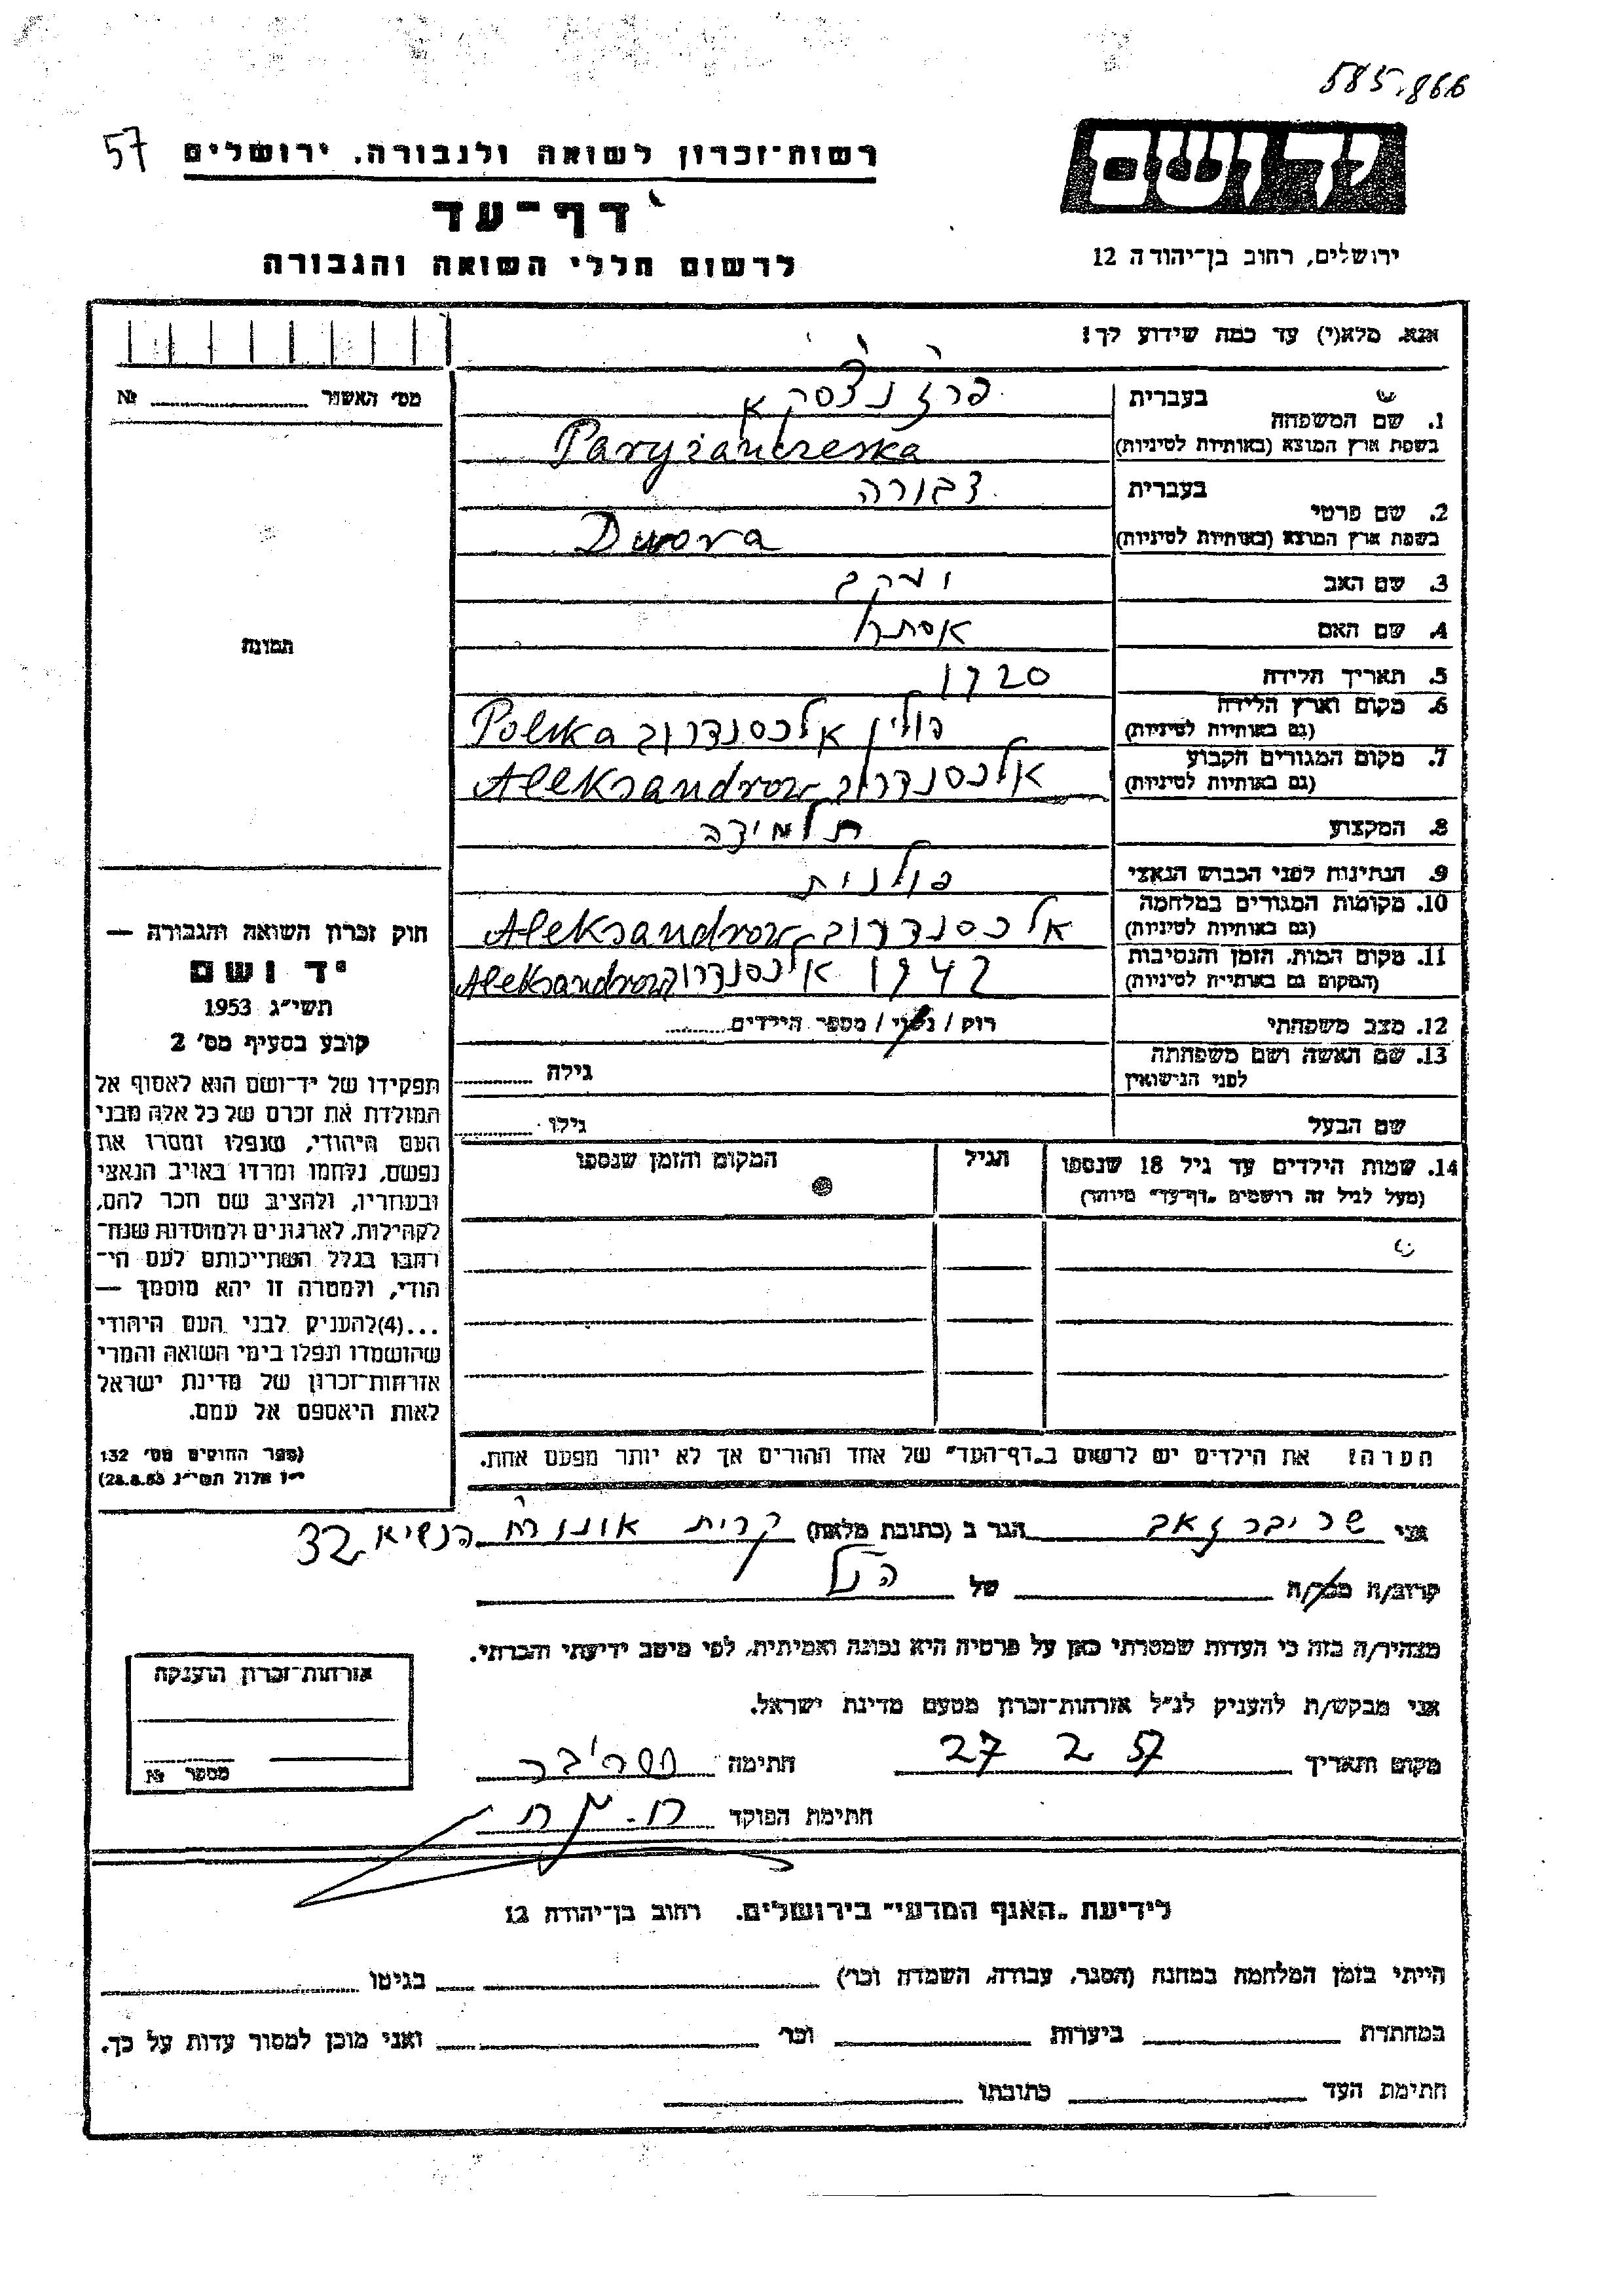 585.866
57
רשות-זכרון לשואה ולגבורה, ירושלים
יד ושם
דף-עד
ירושלים, רחוב בן-יהודה 12
לרשום חללי השואה והגבורה
אנא, מלא(י) עד כמה שידוע לך!
מס׳ האשור № 
בעברית
1. שם המשפחה
בשפת ארץ המוצא (באותיות לטיניות)
Paryżanczeska
בעברית דבורה
2. שם פרטי
בשפת ארץ המוצא (באותיות לטיניות) Dwora
3. שם האב יעקב
4. שם האם אסתר
תמונה
5. תאריך הלידה 1920
6. מקום וארץ הלידה
(גם באותיות לטיניות) פולין אלכסנדרוב Polska
7. מקום המגורים הקבוע
(גם באותיות לטיניות) אלכסנדרוב Aleksandrow
8. המקצוע תלמידה
9. הנתינות לפני הכבוש הנאצי פולנית
10. מקומות המגורים במלחמה
(גם באותיות לטיניות) אלכסנדרוב Aleksandrow
11. מקום המות, הזמן והנסיבות
(המקום גם באותיות לטיניות) 1942 אלכסנדרוב Aleksandrow
12. מצב משפחתי רוק / נשוי / מספר הילדים
13. שם האשה ושם משפחתה
לפני הנישואין גילה
שם הבעל גילו
14. שמות הילדים עד גיל 18 שנספו הגיל המקום והזמן שנספו
(מעל לגיל זה רושמים „דף-עד" מיוחד)
חוק זכרון השואה והגבורה —
יד ושם
תשי״ג 1953
קובע בסעיף מס׳ 2
תפקידו של יד-ושם הוא לאסוף אל
המולדת את זכרם של כל אלה מבני
העם היהודי, שנפלו ומסרו את
נפשם, נלחמו ומרדו באויב הנאצי
ובעוזריו, ולהציב שם וזכר להם,
לקהילות, לארגונים ולמוסדות שנח-
רבו בגלל השתייכותם לעם הי-
הודי, ולמטרה זו יהא מוסמך —
...(4)להעניק לבני העם היהודי
שהושמדו ונפלו בימי השואה והמרי
אזרחות-זכרון של מדינת ישראל
לאות היאספם אל עמם.
(ספר החוקים מס׳ 132
י״ז אלול תשי״ג (28.8.53)
הערה! את הילדים יש לרשום ב„דף-העד" של אחד ההורים אך לא יותר מפעם אחת.
אני שרייבר זאב הגר ב (כתובת מלאה) קרית אונו רח׳ הנשיא 32
קרוב/ה מכר/ה של הנ״ל
מצהיר/ה בזה כי העדות שמסרתי כאן על פרטיה היא נכונה ואמיתית, לפי מיטב ידיעתי והכרתי.
אני מבקש/ת להעניק לנ״ל אזרחות-זכרון מטעם מדינת ישראל.
מקום ותאריך 27 2 57 חתימה
חתימת הפוקד
אזרחות-זכרון הוענקה
מספר №
לידיעת „האגף המדעי" בירושלים. רחוב בן-יהודה 12
הייתי בזמן המלחמה במחנה (הסגר, עבודה, השמדה וכר׳) בגיטו
במחתרת ביערות וכר׳ ואני מוכן למסור עדות על כך.
חתימת העד כתובתו